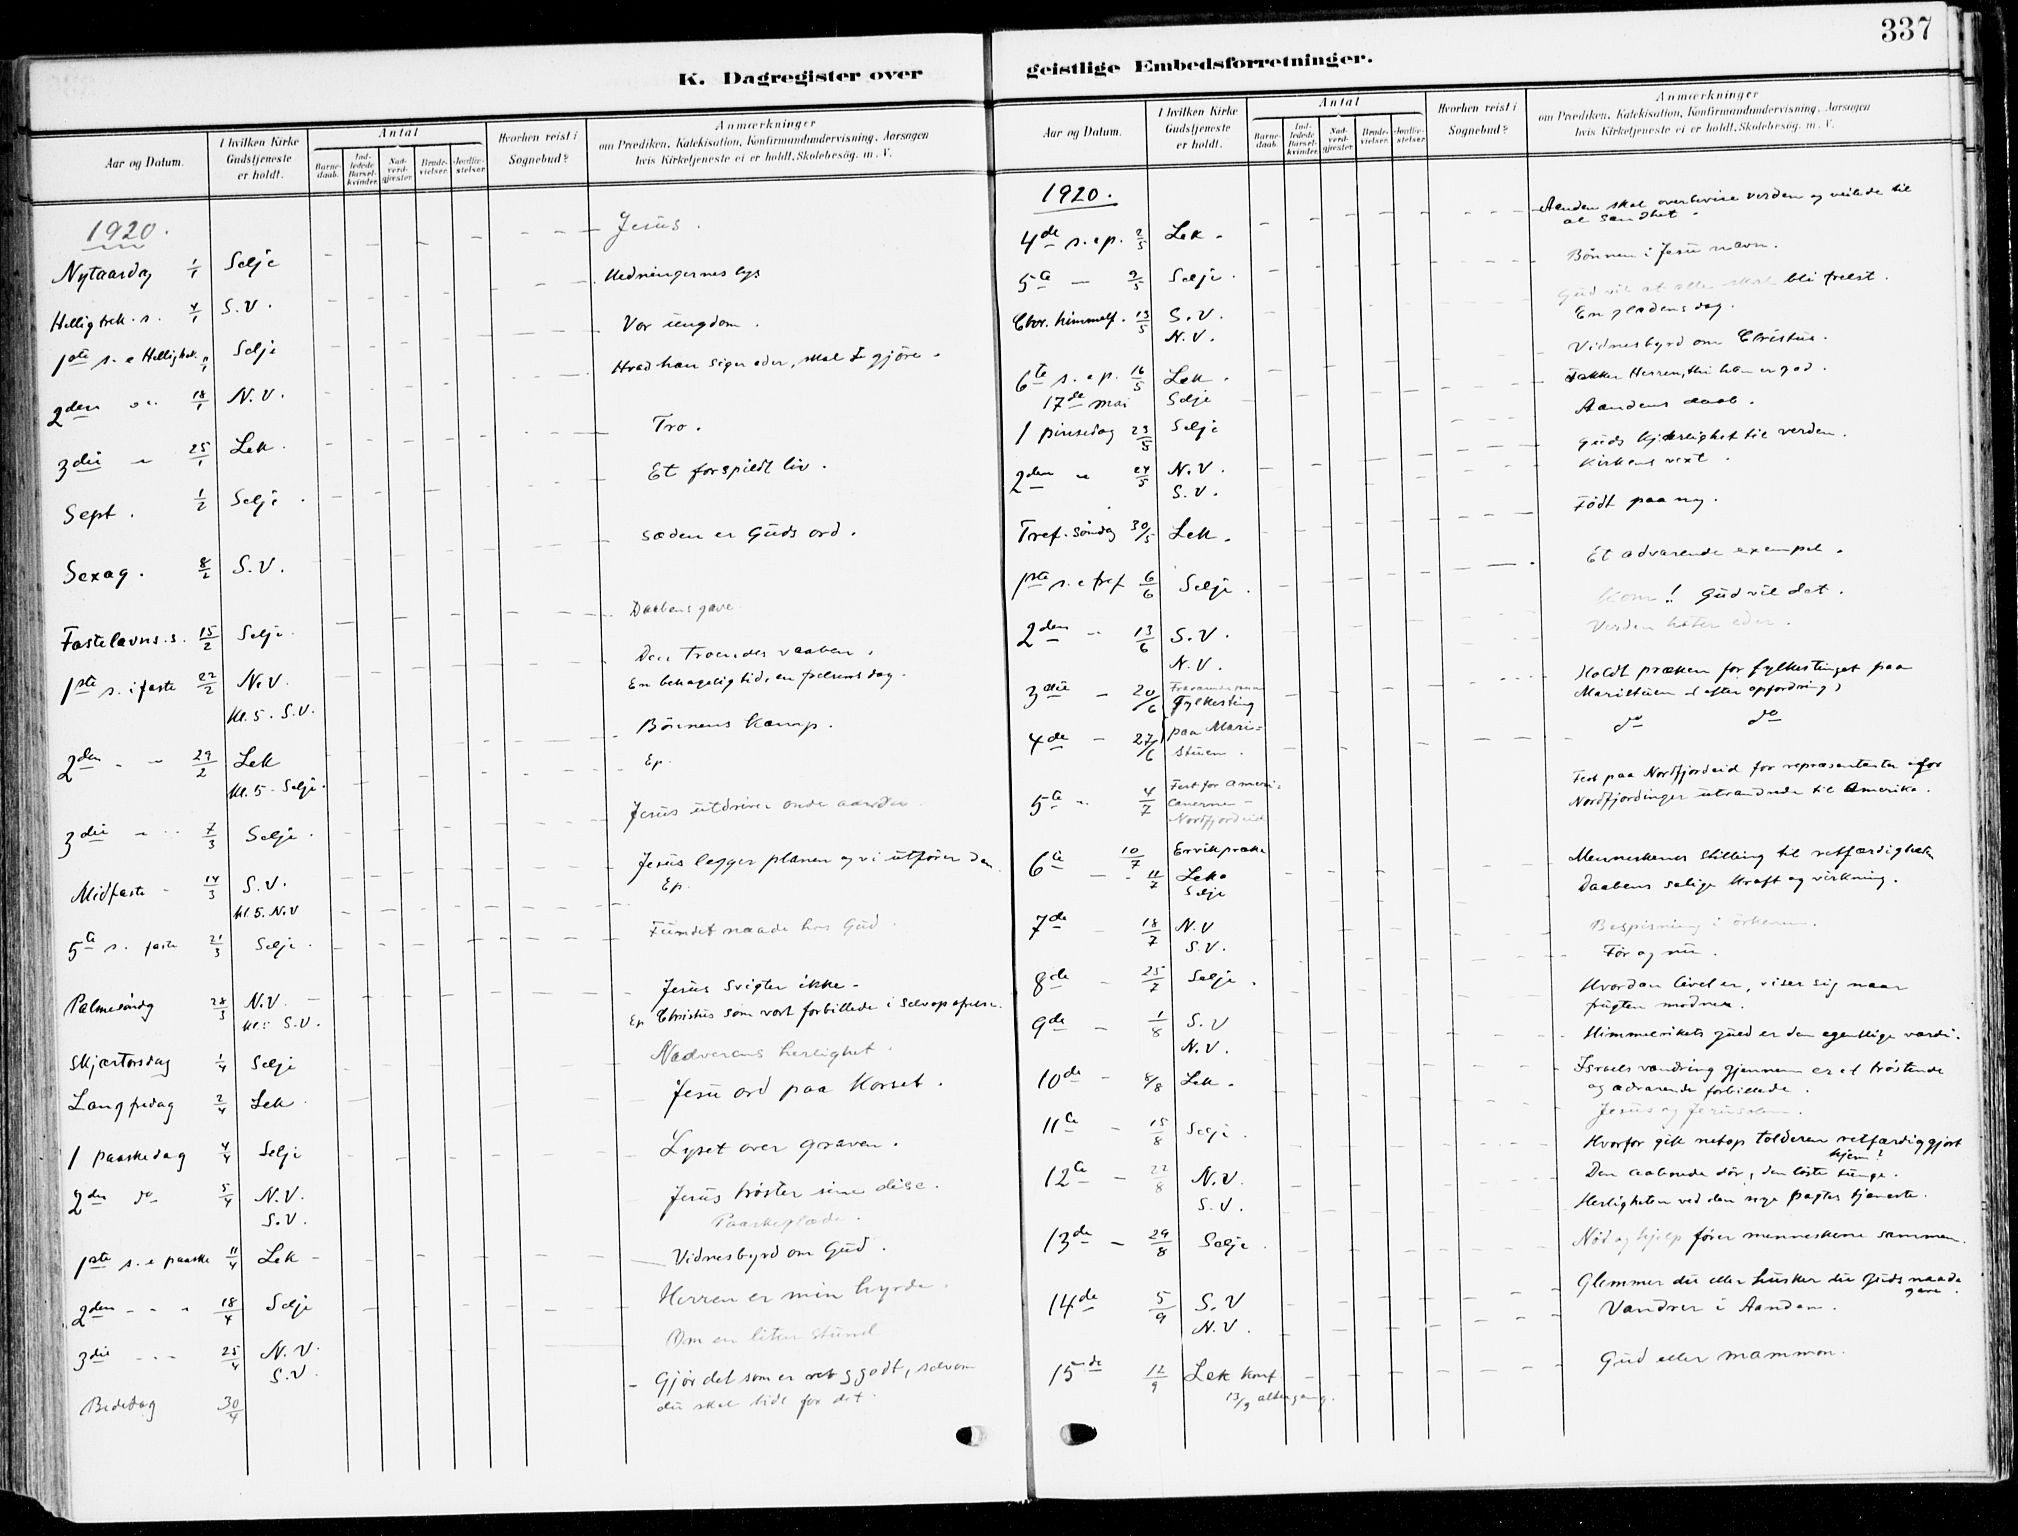 337
K. Dagregister over
Aar og Datum.
I hvilken Kirke Gudstjeneste er holdt.
Antal
Barnedaab.
Indledede Barselkvinder.
Nadverdgjæster.
Brudevielser.
Jordfæstelser.
Hvorhen reist i Sognebud?
Anmærkninger
om Prædiken, Katekisation, Konfirmandundervisning, Aarsagen
hvis Kirketjeneste ei er holdt, Skolebesög. m. V.
1920.
Nytaarsdag 1/1 Selje Jesus.
Helligtrek. s. 4/1 S.V. Hedningernes lys
1ste s. e Helligtrek. Selje Vor ungdom.
2den 18/1 N.V. Hvad han siger eder, skal I gjöre.
3die 25/1 Lek. Tro.
Sept. 1/2 Selje. Et forspildt liv.
Sexag. 8/2 S.V. Sæden er Guds ord.
Fastelavns.s. 15/2 Selje. Daabens gave.
1ste s. i faste 22/2 N.V. Den troendes vaaben.
Kl. 5. S.V. En behagelig tid, en frelsens dag.
2den 29/2 Lek Bönnens kamp.
Kl. 5 - Selje. Ep.
3die 7/3 Selje. Jesus utdriver onde aander.
Midfaste 14/3 S.V. Jesus legger planen og vi utfører den
kl 5. N.V Ep.
5te s. faste 21/3 Selje. Fundet naade hos Gud.
Palmesöndag 28/3 N.V. Jesus svigter ikke.
S.V. Ep Christus som vort forbillede i selvopofrelse.
Skjærtorsdag 1/4 Selje Nadverens herlighet.
Langfredag 2/4 Lek Jesu ord paa korset.
1 paaskedag 4/4 Selje Lyset over graven.
2den do 5/4 N.V. Jesus tröster sine disc.
S.V. Paaskeglæde.
1ste s. e paaske 11/4 Lek Vidnesbyrd om Gud.
2den 18/4 Selje Herren er min hyrde.
3die 25/4 N.V. Om en liten stund
S.V. Gjör det som er ret g godt, selv om
Bededag 30/4 du skal lide for det.
geistlige Embedsforretninger.
Aar og Datum.
I hvilken Kirke Gudstjeneste er holdt.
Antal
Barnedaab.
Indledede Barselkvinder.
Nadverdgjæster.
Brudevielser.
Jordfæstelser.
Hvorhen reist i Sognebud?
Anmærkninger
om Prædiken, Katekisation, Konfirmandundervisning, Aarsagen
hvis Kirketjeneste ei er holdt, Skolebesög. m. V.
1920.
4de s. e p. 2/5 Lek. Aanden skal overbevise verden og veilede til
al sandhet.
5te 9/5 Selje. Bönnen i Jesu navn.
Gud vil at alle skal bli frelst.
Chr. himmelf. 13/5 S.V. En glædens dag.
N.V.
6te s. e p. 16/5 Lek. Vidnesbyrd om Christus.
17de mai Selje Takker Herren, thi han er god.
1 pinsedag 23/5 Selje Aandens daab.
2den 24/5 N.V. Guds kjærlighet til verden.
S.V. Kirkens vext.
Tref. söndag 30/5 Lek. Født paa ny.
1ste s. e tref 6/6 Selje. Et advarende exempel.
2den 13/6 S.V. Kom! Gud vil det.
N.V. Verden hater eder.
3die 20/6 Fraværende paa Holdt præken for fylkestinget paa
Fylkesting Maristuen (efter opfordring)
4de 27/6 paa Mari- do do
stuen.
5te 4/7 Fest for ameri- Fest paa Nordfjordeid for repræsentanter for
canerne - Nordfjordinger utvandrede til Amerika.
Nordfjordeid
6te 10/7 Ervikpræke Menneskenes stilling til retfærdigheten
11/7 Lek. Daabens salige kraft og virkning.
Selje
7de 18/7 N.V Bespisning i örkenen.
S.V. För og nu.
8de 25/7 Selje. Hvordan livet er, viser sig naar
frugten modnes.
9de 1/8 S.V Himmerikets guld er den egentlige værdi.
N.V.
10de 8/8 Lek. Israels vandring gjennem er et tröstende
og advarende forbillede.
11te 15/8 Selje. Jesus og Jerusalem.
Hvorfor gik netop tolderen retfærdiggjort
hjem?
12te 22/8 N.V. Den aabnede dör, den löste tunge.
S.V. Herligheten ved den nye pagtes tjeneste.
13de 29/8 Selje. Nöd og hjelp förer menneskene sammen.
14de 5/9 S.V Glemmer du eller husker du Guds naade
gave.
N.V. Vandrer i Aanden.
15de 12/9 Lek konf Gud eller mammon.
13/9 altergang.